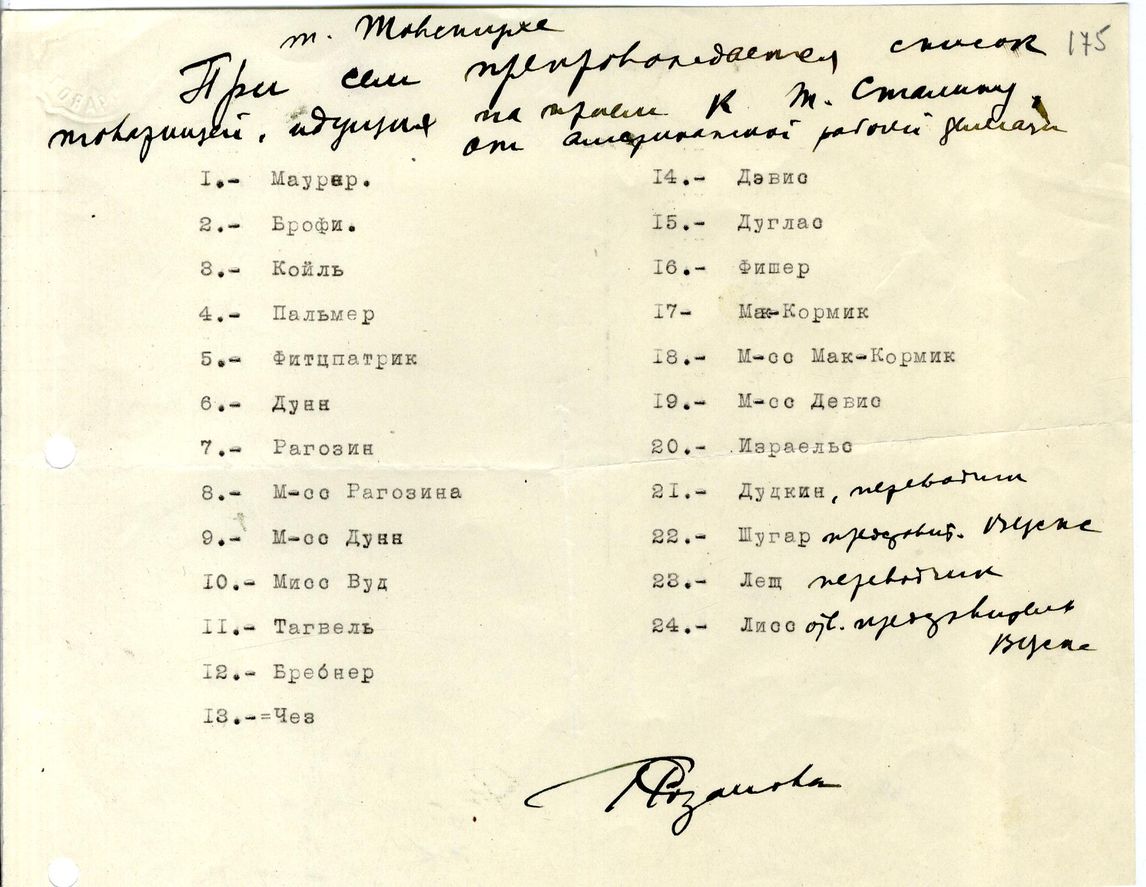 т. Товстухе
175
При сем препровождается список
товарищей, идущих на прием к т. Сталину,
от американской рабочей делегации
1.- Маурер.
2.- Брофи.
3.- Койль
4.- Пальмер
5.- Фитцпатрик
6.- Дунн
7.- Рагозин
8.- М-сс Рагозина
9.- М-сс Дунн
10.- Мисс Вуд
11.- Тагвель
12.- Бребнер
13.-=Чез
14.- Дэвис
15.- Дуглас
16.- Фишер
17- Мак-Кормик
18.- М-сс Мак-Кормик
19.- М-сс Девис
20.- Израельс
21.- Дудкин, переводчик
22.- Шугар представит. ВЦСПС
23.- Лещ переводчик
24.- Лисс от. представитель
ВЦСПС
Розанова